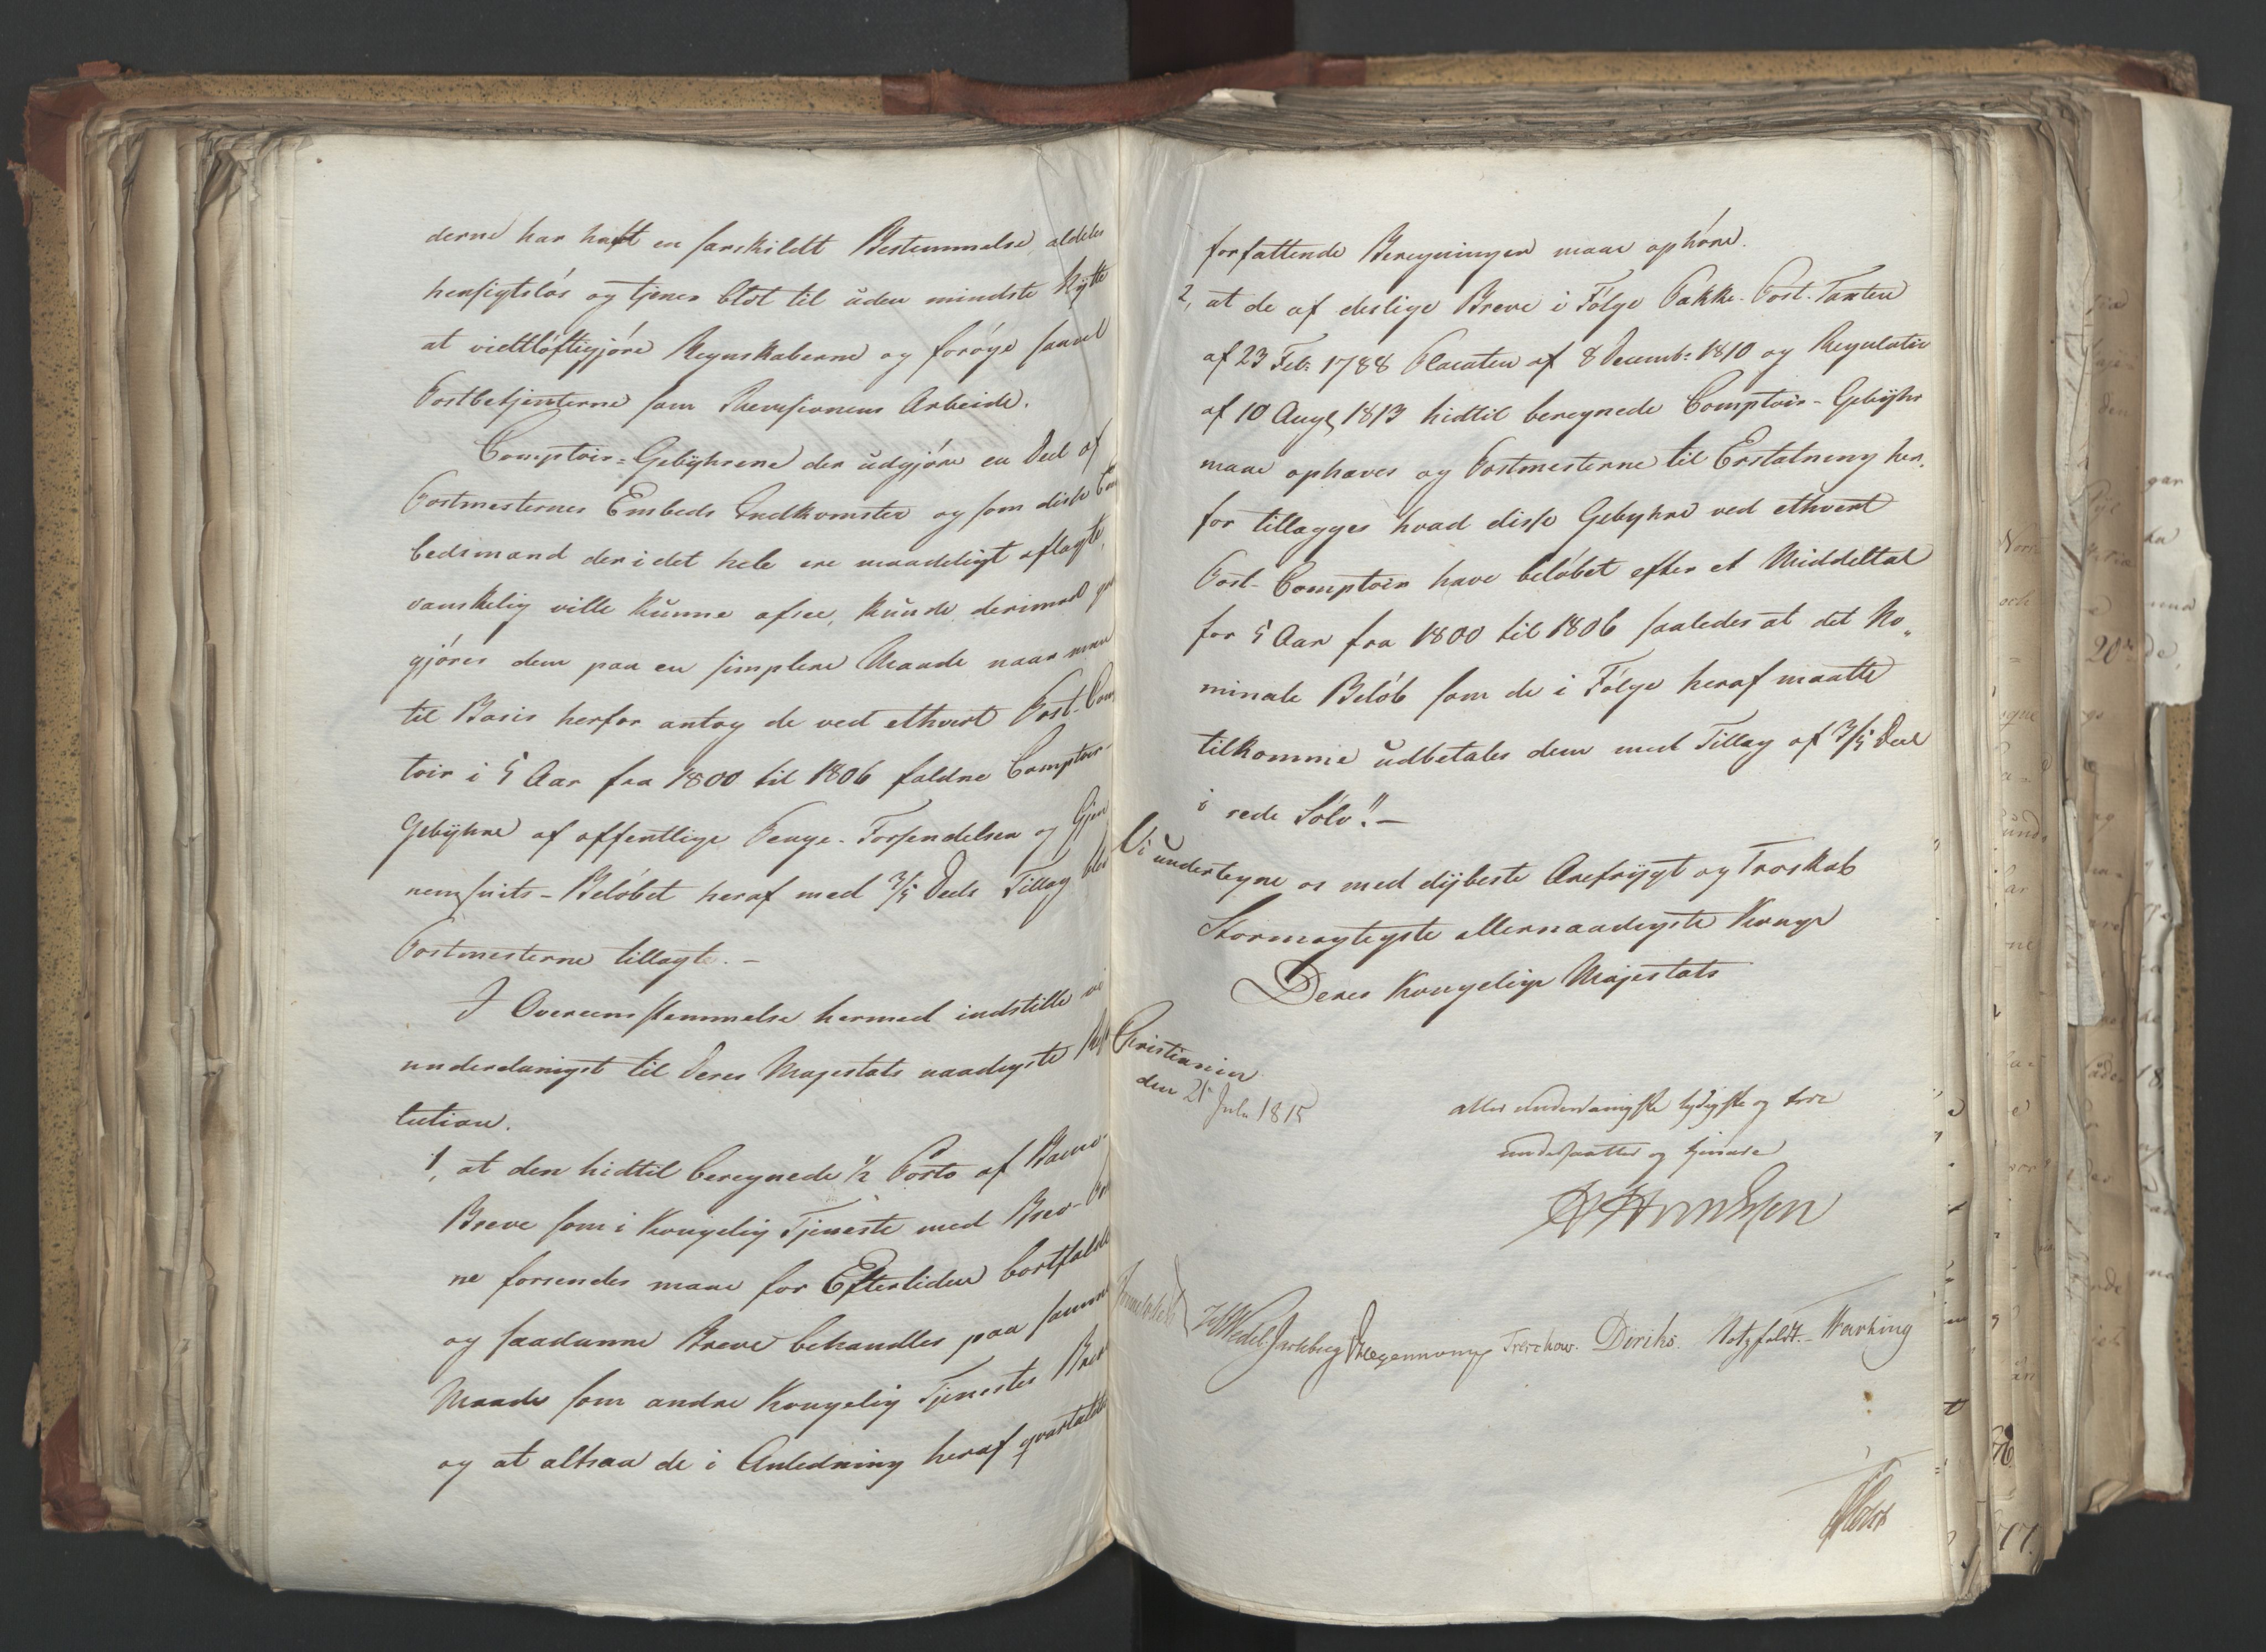 derne har haft en særskildt Bestemmelse, aldeles
hensigtsløs og tjener blot til uden mindste Nytte
at vidtløftiggjøre Regnskaberne og forøge saavel
Postbetjenterne som Revisionens Arbeide.
Comptoir-Gebÿhrene der udgjøre en Deel af
Postmesternes Embeds Indkomster og som disse Em
bedsmænd der i det hele ere maadeligt aflagte,
vanskelig ville kunne afsee, kunde derimod god
gjøres dem paa en simplere Maade naar man
til Basis herfor antog de ved ethvert Post-Comp
toir i 5 Aar fra 1800 til 1806 faldne Comptoir-
Gebÿhre af offentlige Penge-Forsendelser og Gjen
nemsnits-Beløbet heraf med 3/5 Deels Tillæg blev
Postmesterne tillagte. –
I Overeensstemmelse hermed indstille vi
underdanigst til Deres Majestæts naadigste Reso
lution.
1, at den hidtil beregnede 1/2 Porto af Banco-
Breve som i Kongelig Tjeneste med Brev-Po
ne forsendes maae for Eftertiden bortfalde
og saadanne Breve behandles paa samme
Maade som andre Kongelig Tjenestes Breve
og at altsaa de i Anledning heraf qvartaliter
forfattende Beregninger maae ophøre.
2, at de af deslige Breve i Følge Pakke-Post-Taxten
af 23 Feb: 1788 Placaten af 8 Decemb: 1810 og Regulativ
af 10 Aug 1813 hidtil beregnede Comptoir-Gebÿhr
maae ophæves og Postmesterne til Erstatning her-
for tillægges hvad disse Gebyhre ved ethvert
Post-Comptoir have beløbet efter et Middeltal
for 5 Aar fra 1800 til 1806 saaledes at det No„
minale Beløb som de i Følge heraf maatte
tilkomme udbetales dem med Tillæg af 3/5 Deel
i rede Sølv". –
Vi undertegne os med dÿbeste Ærefrÿgt og Troskab
Stormægtigste allernaadigste Konge
Deres Kongelige Majestæts
Christiania
den 21 Juli 1815
aller underdanigste lydigste og troe
undersaatter og tjenere
Sommerhielm
Wedel Jarlsberg Hegermann Treschow. Diriks. Motzfeldt. – Harbing